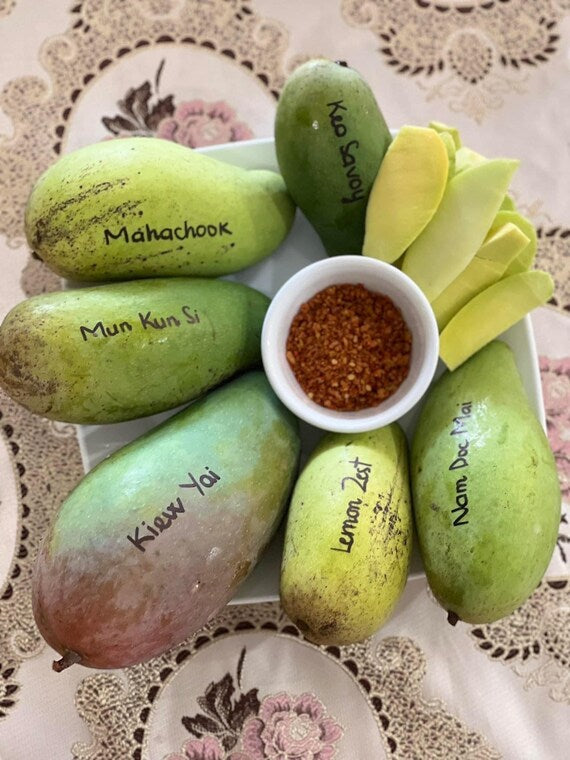 Keo Savoy
Mahachook
Mun Kun Si
Kiew Yai
Lemon Zest
Nam Doc Mai